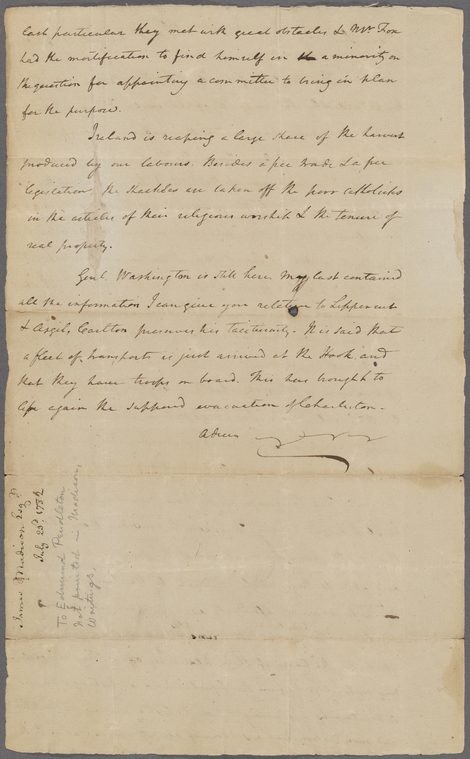 last particular they met with great obstacles & Mr. Fox
had the mortification to find himself in a minority on
the question for appointing a committee to bring in plan
for the purpose.
Ireland is reaping a large share of the harvest
produced by our labours. Besides a free trade & a free
legislation, the shackles are taken off the poor Catholicks
in the articles of their religious worship & the tenure of
real property.
Genl. Washington is still here. My last contained
all the information I can give you relation to Lippencut
& Asgil, Carlton preserves his taciturnity. It is said that
a fleet of transports is just arrived at the Hook and
that they have troops on board. This has brought to
life again the supposed evacuation of Charleston.
Adieu
James Madison Esqr.
July 23d. 1782
To Edmund Pendleton
Not printed in Madison,
Writings.